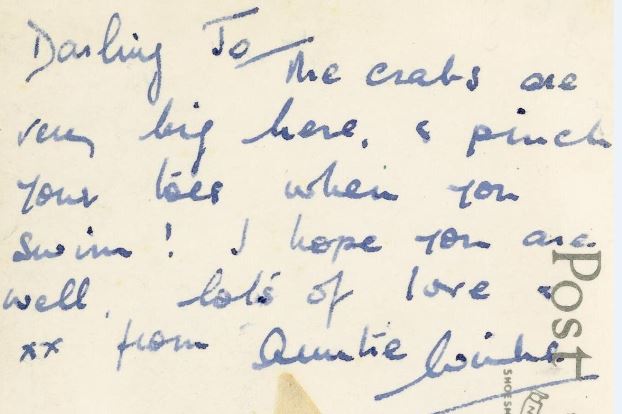 Darling Jo
The crabs are
very big here, & pinch
your toes when you
swim! I hope you are
well, lots of love &
xx from Auntie
Post